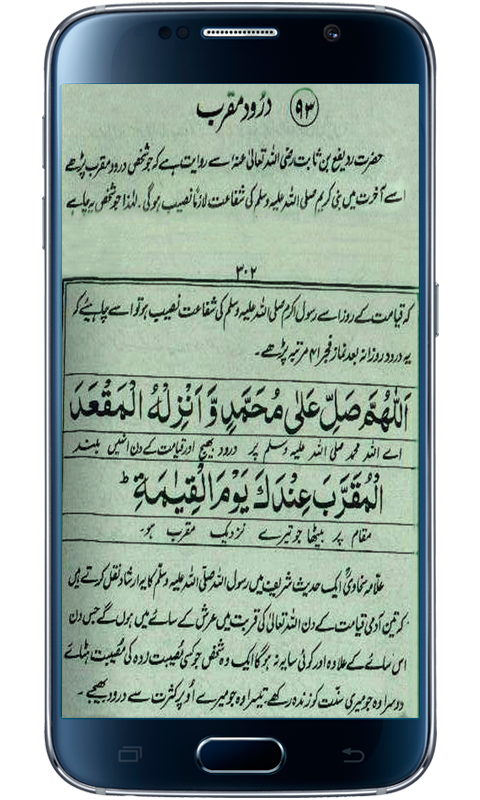 SAMSUNG
۹۳ درُود مقرب
حضرت ردیفع بن ثابت رضی اللہ تعالیٰ عنہٗ سے روایت ہے کہ جو شخص درود مقرب پڑھے
اسے آخرت میں نبی کریم صلی اللہ علیہ وسلم کی شفاعت لازمًا نصیب ہو گی۔ لہٰذا جو شخص یہ چاہے
۳۰۲
کہ قیامت کے روز اسے رسول اکرم صلی اللہ علیہ وسلم کی شفاعت نصیب ہو تو اسے چاہیئے کہ
یہ درود روزانہ بعد نماز فجر ۴۱ مرتبہ پڑھے۔
اَللّٰهُمَّ صَلِّ عَلٰى مُحَمَّدٍ وَّ اَنْزِلْهُ الْمَقْعَدَ
اے اللہ محمد صلی اللہ علیہ وسلم پر درود بھیج اور قیامت کے دن انہیں بلند
الْمُقَرَّبَ عِنْدَكَ يَوْمَ الْقِيٰمَةِ ؕ
مقام پر بیٹھا جو تیرے نزدیک مقرب ہو۔
علامہ سخاویؒ ایک حدیث شریف میں رسول اللہ صلی اللہ علیہ وسلم کا یہ ارشاد نقل کرتے ہیں
کہ تین آدمی قیامت کے دن اللہ تعالیٰ کی قربت میں عرش کے سائے میں ہوں گے جس دن
اس سائے کے علاوہ اور کوئی سایہ نہ ہو گا ایک وہ شخص جو کسی مُصیبت زدہ کی مُصیبت ہٹائے
دوسرا وہ جو میری سنّت کو زندہ رکھے تیسرا وہ جو میرے اُوپر کثرت سے درود بھیجے۔